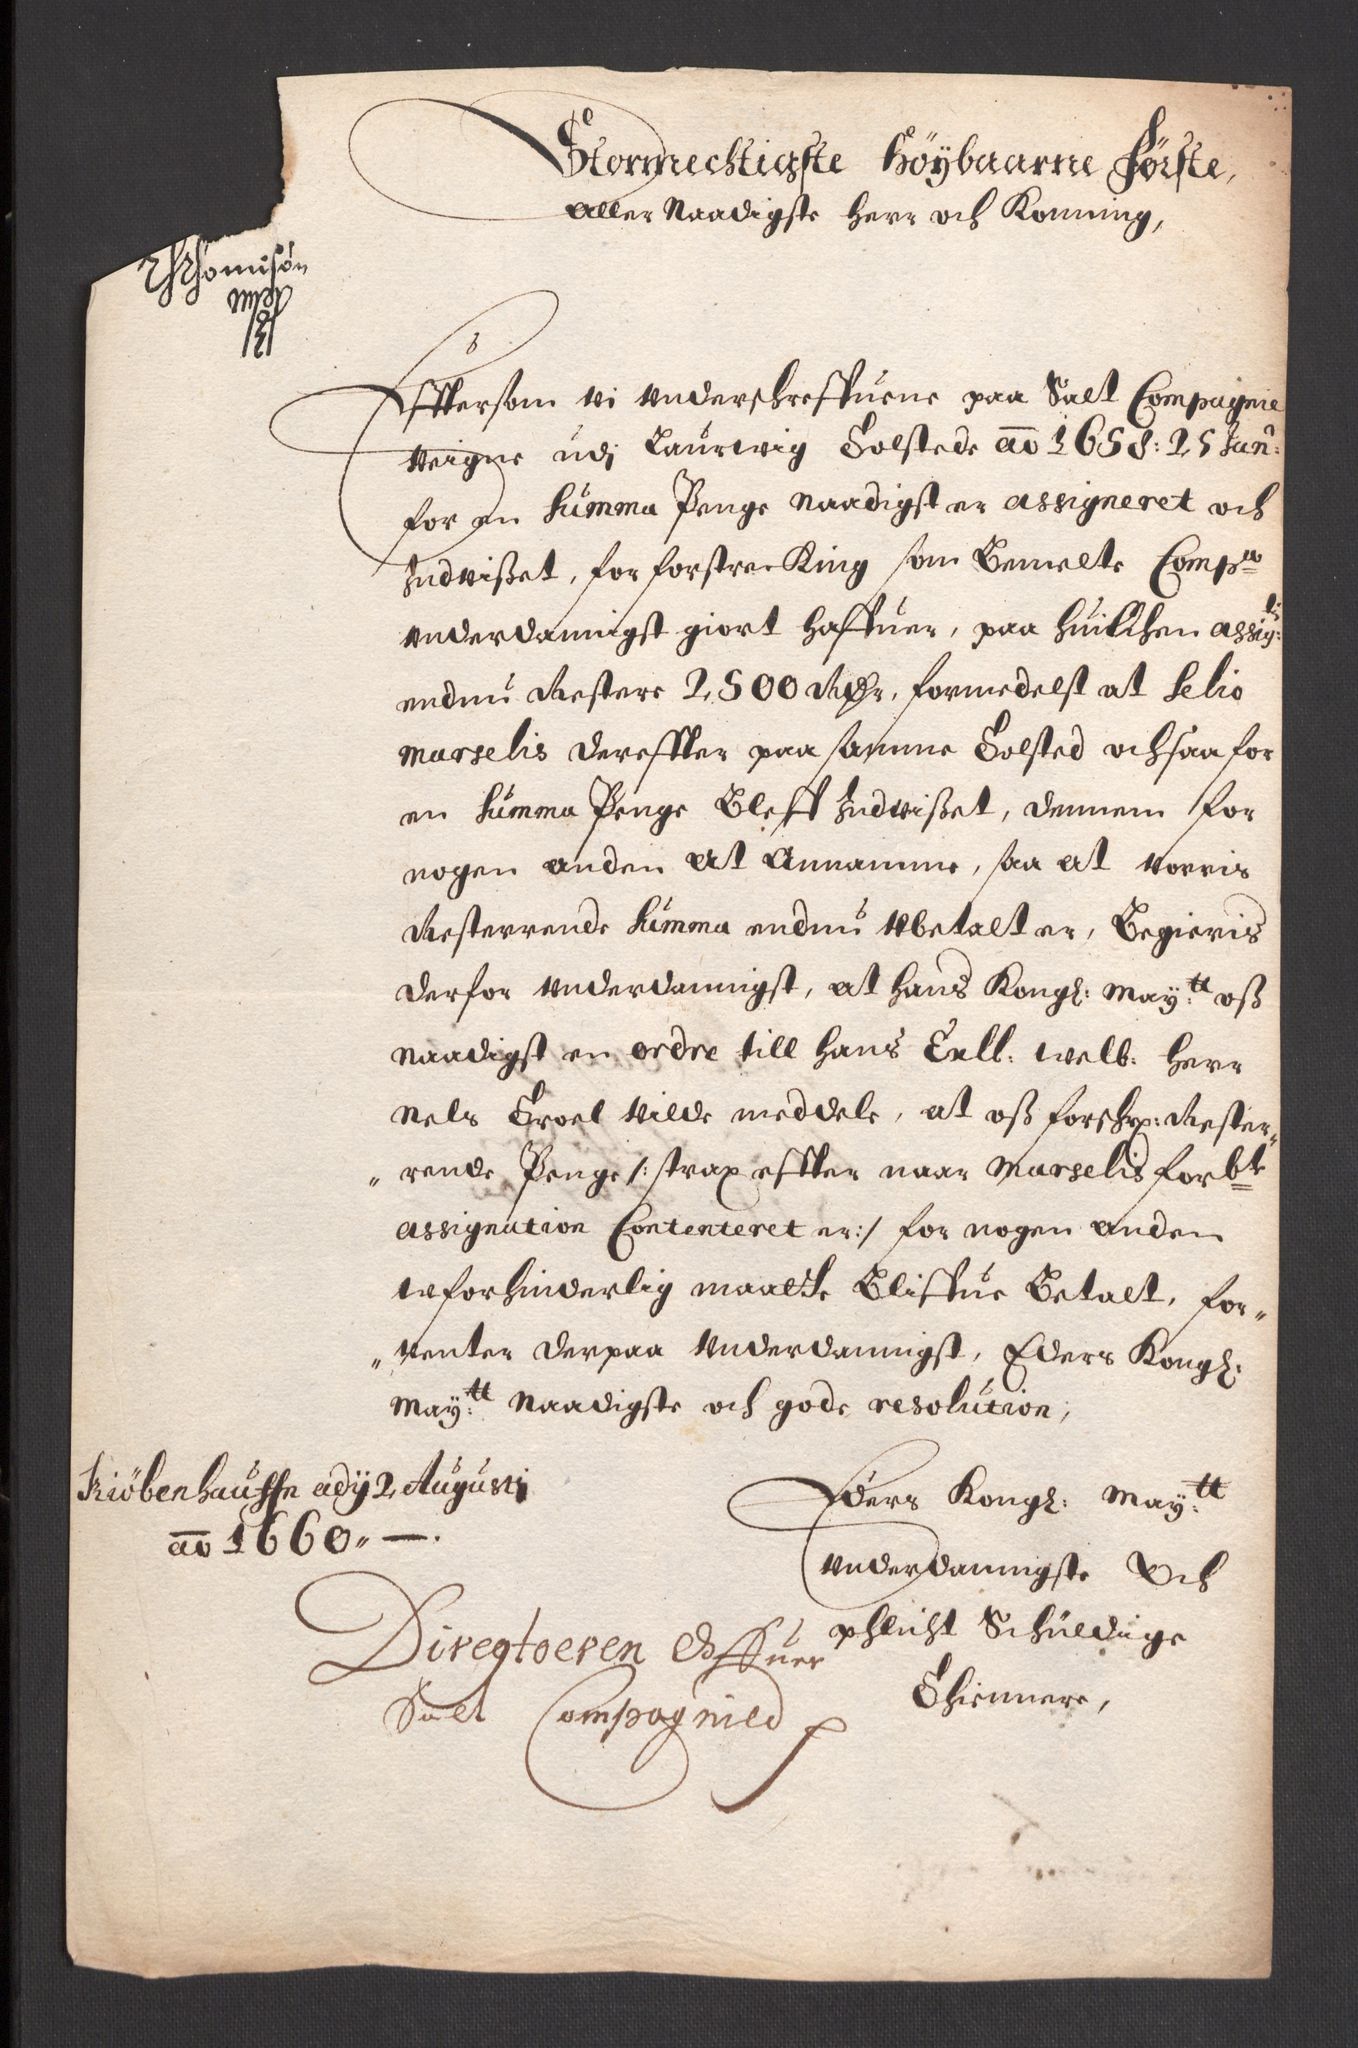 Stormechtigste Höÿbaarne Første,
aller Naadigste herr och Konning,
Thomisön
Effttersom vi underschreffuene paa Salt Compagnie
Veigne udj Laurwig Tolstede ao 1658: 25 Jun:
for en Summa Penge naadigst er assigneret och
Indvißet, for forstrecKing som Bemelte Comp:
underdannigst giort haffuer, paa huilchen assig:
endnu Restere 2500 Rdr, formedelst at Selio
Marselis dereffter paa samme Tolsted ochsaa for
en Summa Penge Bleff Indvißet, dennem for
nogen anden at Annamme, saa at vorris
Resterrende Summa endnu Ubetalt er, Begieris
derfor underdannigst, at hans Kongl: Maÿ:tt oß
naadigst en ordre till hans Exll: welb: herr
Nels Troel vilde meddele, at oß forschr: Rester„
„rende Penge /: strax effter naar Marselis forbte
assignation Contenteret er :/ for nogen anden
uforhinderlig maatte Bliffue Betalt, for„
„venter derpaa underdannigst, Eders Kongl:
Maÿ:tt Naadigste och gode resolution,
Kiöbenhauffn adÿ 2 Augusti
ao 1660
Eders Kongl: Maÿ:tt
Underdannigste Och
phlicht Schuldige
Thiennere,
Direqtoeren Offuer
Salt Compagnied